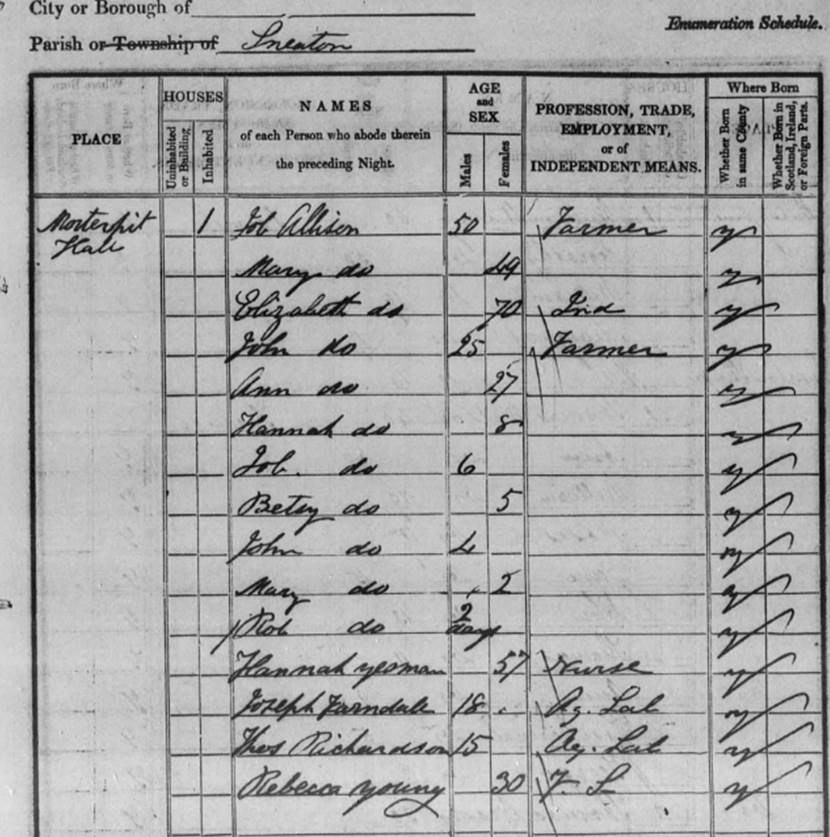 City or Borough of
Enumeration Schedule.
Parish or Township of Sneaton
PLACE
HOUSES
Uninhabited or Building
Inhabited
NAMES
of each Person who abode therein
the preceding Night.
AGE
and
SEX
Males
Females
PROFESSION, TRADE,
EMPLOYMENT,
or of
INDEPENDENT MEANS.
Where Born
Whether Born in same County
Whether Born in Scotland, Ireland, or Foreign Parts.
Morterpit 1 Job Allison 50 Farmer y
Hall
Mary do 49 y
Elizabeth do 70 Ind y
John do 25 Farmer y
Ann do 27 y
Hannah do 8 y
Job. do 6 y
Betsy do 5 y
John do 4 y
Mary do 2 y
Rob do 2 days y
Hannah yeoman 57 Nurse y
Joseph Farndale 18 Ag. Lab y
Thos Richardson 15 Ag. Lab y
Rebecca young 30 F S y